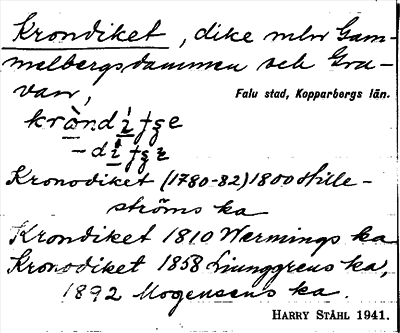 Krondiket, dike mlw Gam-
melbergsdammen och Gru-
van,
Falu stad, Kopparbergs län.
Kronodiket (1780-82) 1800 Hille-
ströms ka
Krondiket 1810 Wermings ka
Kronodiket 1858 Ljunggrens ka,
1892 Mogensens ka.
HARRY STÅHL 1941.